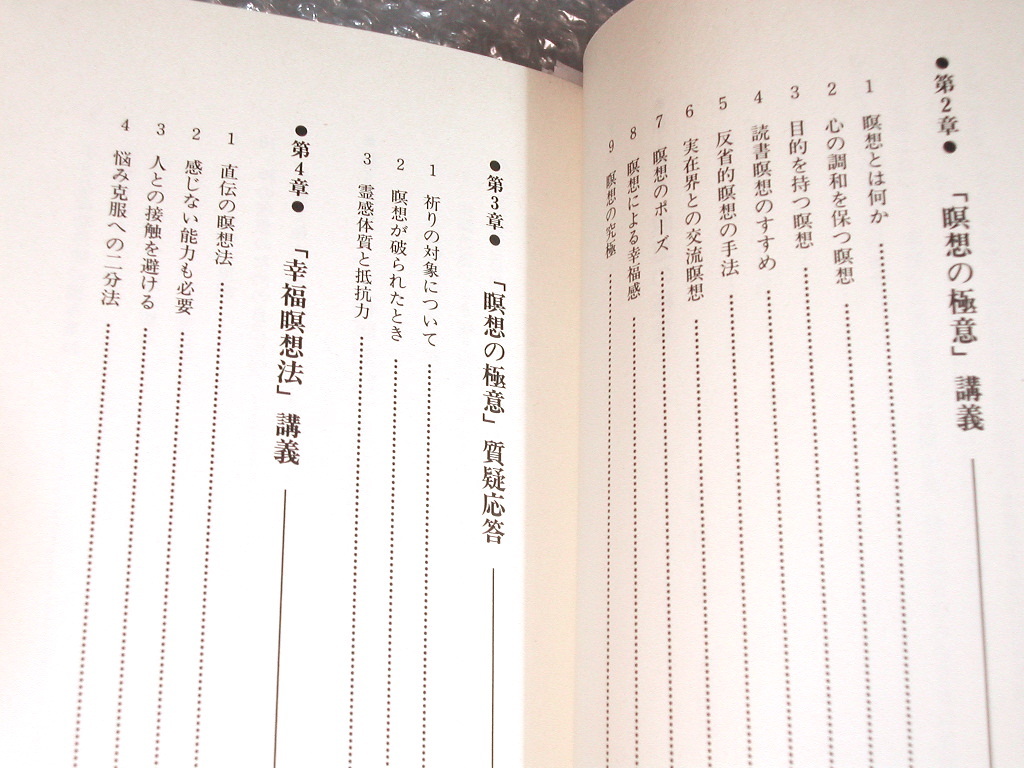 ●第2章● 「瞑想の極意」講義
1 瞑想とは何か
2 心の調和を保つ瞑想
3 目的を持つ瞑想
4 読書瞑想のすすめ
5 反省的瞑想の手法
6 実在界との交流瞑想
7 瞑想のポーズ
8 瞑想による幸福感
9 瞑想の究極
●第3章● 「瞑想の極意」質疑応答
1 祈りの対象について
2 瞑想が破られたとき
3 霊感体質と抵抗力
●第4章● 「幸福瞑想法」講義
1 直伝の瞑想法
2 感じない能力も必要
3 人との接触を避ける
4 悩み克服への二分法